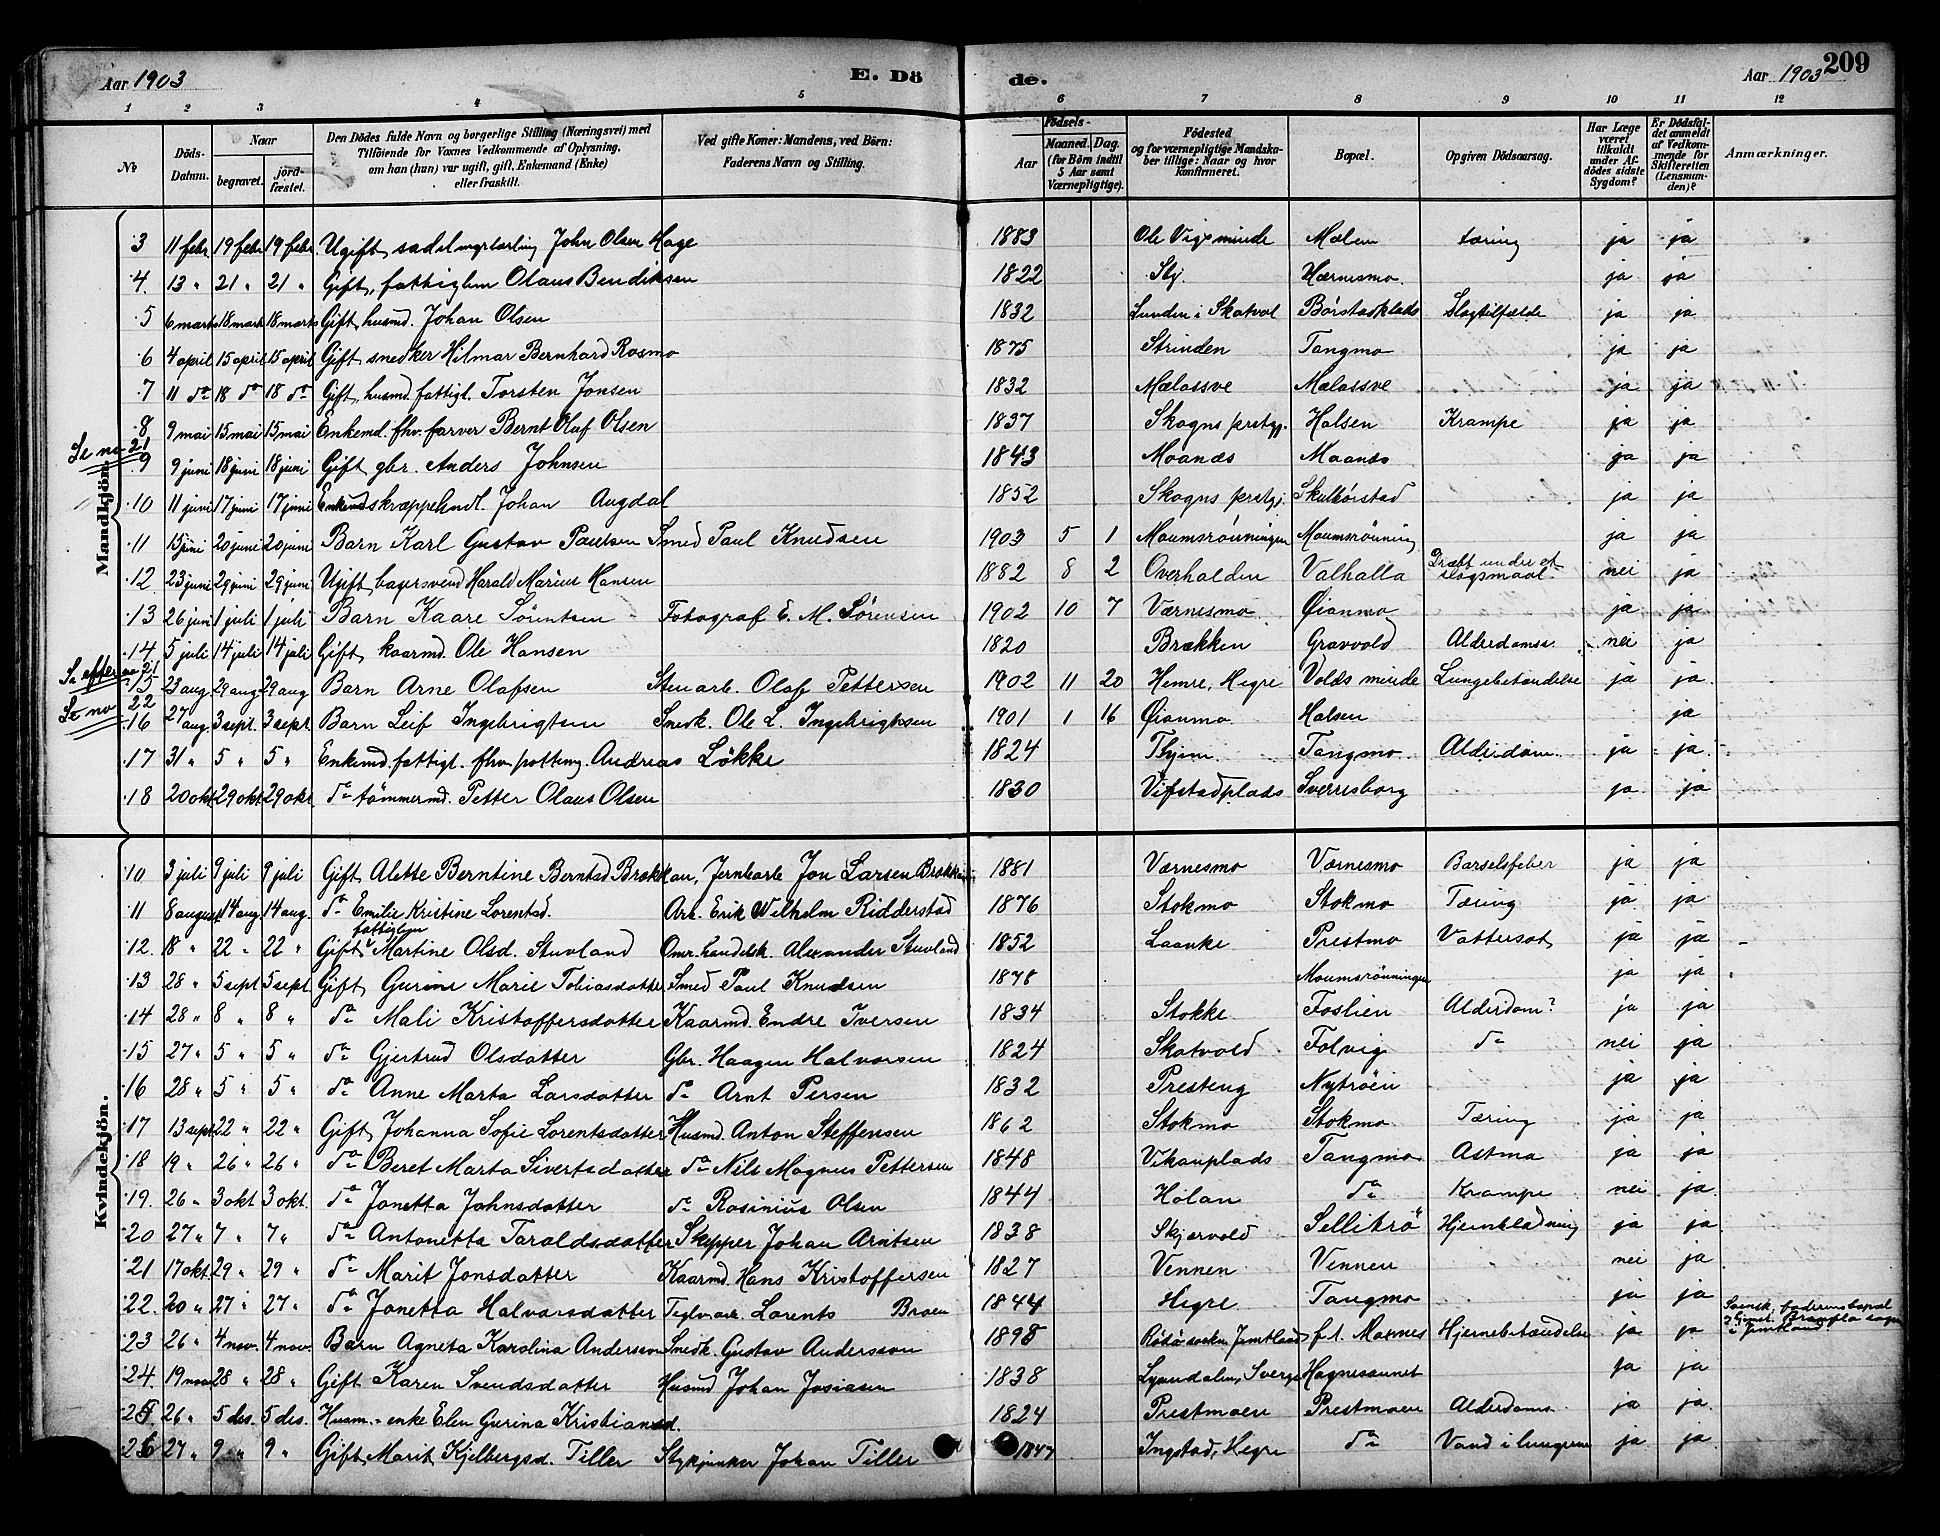 Aar 1903 E. Dö de. Aar 1903 209
1 2 3 4 5 6 7 8 9 10 11 12
No Döds-Datum. Naar begravet. jordfæstet. Den Dödes fulde Navn og borgerlige Stilling (Næringsvei) med Tilföiende för Voxnes Vedkommende af Oplysning, om han (hun) var ugift, gift, Enkemand (Enke) eller fraskilt. Ved gifte Koner: Mandens, ved Börn: Faderens Navn og Stilling. Födsels- Aar Maaned. Dag. (for Börn indtil 5 Aar samt Værnepligtige). Födested og for værnepligtige Mandskaber tillige: Naar og hvor konfirmeret. Bopæl. Opgiven Dödsaarsag. Har Læge været tilkaldt under Afdödes sidste Sygdom? Er Dödsfaldet anmeldt af Vedkommende for Skifteretten (Lensmanden)? Anmærkninger.
Mandkjön.
3 11 febr 19 febr 19 febr. Ugift sadelmagerlærling John Olsen Hage 1883 Ole Vigs minde Mælen tæring ja ja
4. 13 " 21 " 21 " Gift, fattiglem Olaus Bendiksen 1822 Hærnesmo. ja ja
5 6 marts 18 marts 18 marts Gift husmd. Johan Olsen 1832 Lunden i Skatvol Börstadplads Slagtilfælde ja ja
6 4 april 15 april 15 april Gift snedker Hilmar Bernhard Rosmo 1875 Strinden Tangmo ja ja
7 11 do 18 do 18 do Gift, husmd. fattigl. Torsten Jonsen 1832 Mælassve Mælassve ja ja
8 9 mai 15 mai 15 mai Enkemd. fhv. farver Bernt Olaf Olsen 1837 Skogns prstgj. Halsen Krampe ja ja
Se no 21
9 9 juni 18 juni 18 juni Gift gbr. Anders Johnsen 1843 Moanes Maanes ja ja
10 11 juni 17 juni 17 juni Enkemd skræppehndl. Johan Augdal 1852 Skogns prstgj. Skulbörstad ja ja
11 15 juni 20 juni 20 juni Barn Karl Gustav Paulsen Smed Paul Knudsen 1903 5 1 Moumsrönningen Moumsrönning ja ja
12. 23 juni 29 juni 29 juni Ugift bagersvend Harald Marius Hansen 1882 8 2 Overhalden Valhalla Dræbt under et slagsmaal. nei ja
13 26 juni 1 juli 1 juli Barn Kaare Sörensen Fotograf E. M. Sörensen 1902 10 7 Værnesmo Öianmo ja ja
14 5 juli 14 juli 14 juli Gift kaarmd. Ole Hansen 1820 Brækken Gravvold Alderdomsv. nei ja
Se efter no 21
15 23 aug 29 aug 29 aug Barn Arne Olafsen Stenarb. Olaf Pettersen 1902 11 20 Hemre, Hegre Volds minde Lungebetændelse ja ja
Se no 22
16 27 aug. 3 sept. 3 sept. Barn Leif Ingebrigtsen Snedk. Ole L. Ingebrigtsen 1901 1 16 Öianmo Halsen ja
17 31 " 5 " 5 " Enkemd. fattigl. fhv. Andreas Lökke 1824 Tangmo Alderdom ja ja
18 20 okt 29 okt 29 okt do tömmermd. Petter Olaus Olsen 1830 Vifstadplads Sverresborg ja ja
Kvindekjön.
10 3 juli 9 juli 9 juli Gift Alette Berntine Berntsd Brækkan, Jernbarb Jon Larsen Brækkan 1881 Værnesmo Værnesmo Barselsfeber ja ja
11 8 august 14 aug 14 aug. do Emilie Kristine Lorentsd. Arb. Erik Wilhelm Ridderstad 1876 Stokmo Stokmo Tæring ja ja
12. 18 " 22 " 22 " Gift fattiglem Martine Olsd. Stuvland Omr. handelsk. Alexander Stuvland 1852 Laanke Prestmo Vattersot ja ja
13 28 " 5 sept 5 sept. Gift Gurine Marie Tobiasdatter Smed Paul Knudsen 1878 Moumsrönningen ja ja
14 28 " 8 " 8 " do Mali Kristoffersdatter Kaarmd. Endre Iversen 1834 Stokke Foslien Alderdom? ja ja
15 27 " 5 " 5 " do Gjertrud Olsdatter Gbr. Haagen Halvorsen 1824 Skatvold Folvig do nei ja
16 28 " 5 " 5 " do Anne Marta Larsdatter do Arnt Persen 1832 Presteng Nytröen ja ja
17 13 sept 22 " 22 " Gift Johanna Sofie Lorentsdatter Husmd. Anton Steffensen 1862 Stokmo Stokmo Tæring ja ja
18 19 " 26 " 26 " do Beret Marta Sivertsdatter do Nils Magnus Pettersen 1848 Vikanplads Tangmo Astma ja ja
19. 26 " 3 okt 3 okt. do Jonetta Johnsdatter do Rosinius Olsen 1844 Holan do Krampe nei ja
20 27 " 7 " 7 " do Antonetta Taraldsdatter Skipper Johan Arntsen 1838 Skjærvold Sellikrö Hjerneblödning ja ja
21 17 okt. 29 " 29 " do Marit Jonsdatter Kaarmd. Hans Kristoffersen 1827 Vennen Vennen nei ja
22. 20 " 27 " 27 " do Jonetta Halvorsdatter Teglverk. Lorents Braen 1844 Hegre Tangmo ja ja
23 26 " 4 nov. 4 nov. Barn Agneta Karolina Andersson Snedk. Gustav Andersson 1895 Rödö socken Jemtland f.t. Mosnes Hjernebetændelse ja ja Svensk, faderens bopæl i Jemtland
24. 19 nov 28 " 28 " Gift Karen Svendsdatter Husmd Johan Josiasen 1838 Ljusndalen, Sverge Hognessunet ja ja
25. 26 " 5 des. 5 des. Husm.-enke Elen Gurina Kristiansd. 1824 Prestmoen Prestmoen Alderdoms ja ja
26 27 " 9 " 9 " Gift Marit Kjelbergsd. Tiller Stykjunker Johan Tiller 1847 Ingstad, Hegre do Vand i lungerne ja ja